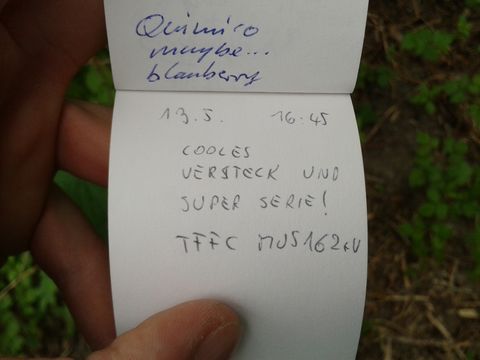 Quimico
maybe...
blauberry
13.5. 16:45
COOLES
VERSTECK UND
SUPER SERIE!
TFFC MUS162